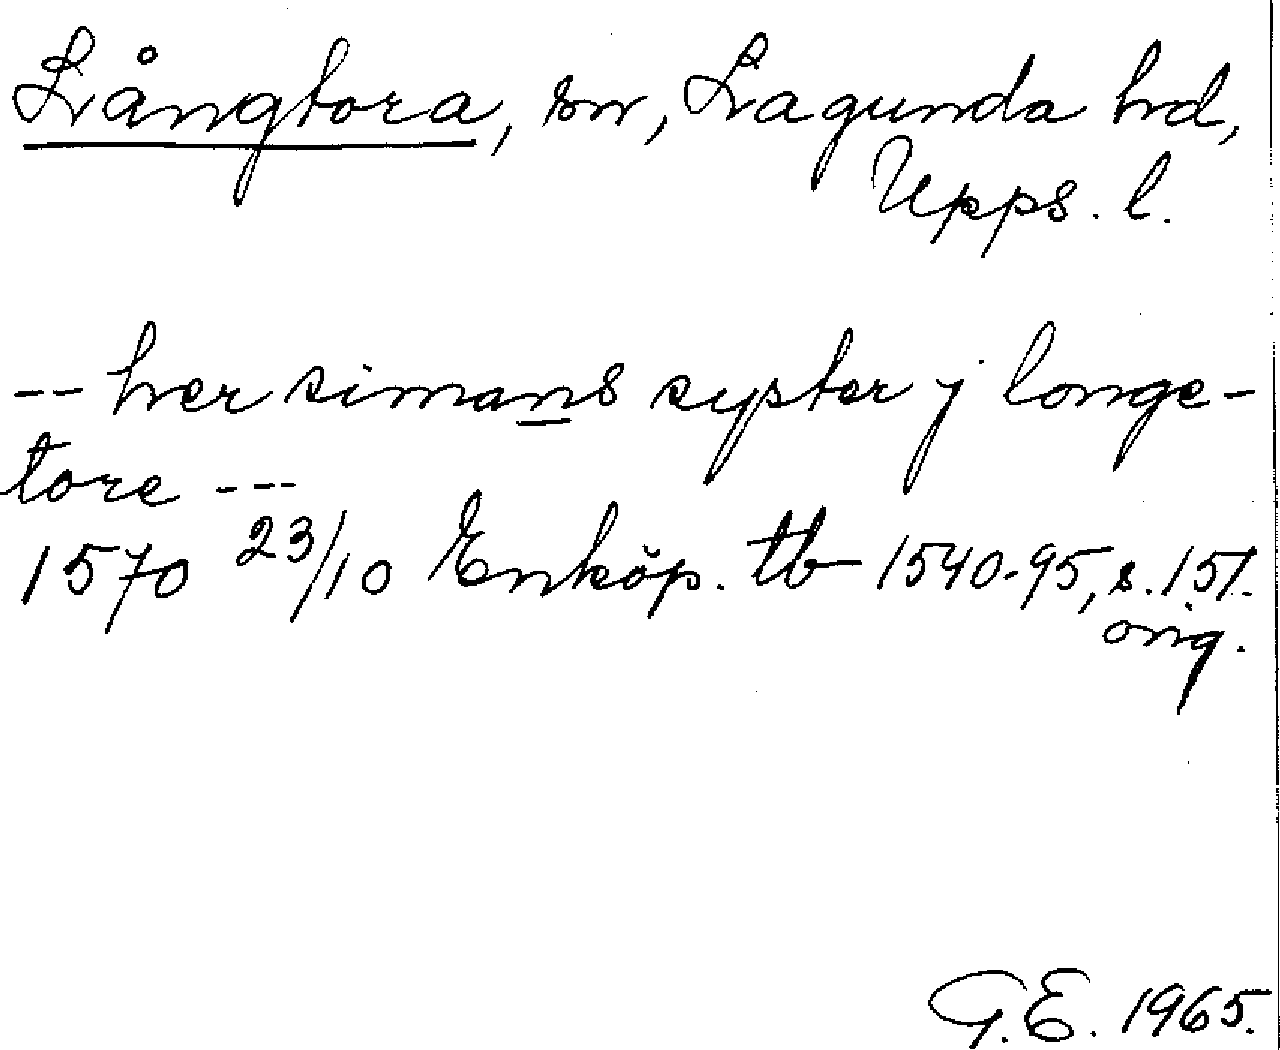 Långtora, sn, Lagunda hd,
Upps. l.
-- her simans syster j longe-
tore ---
1570 23/10 Enköp. tb 1540-95, s. 151.
orig.
G.E. 1965.